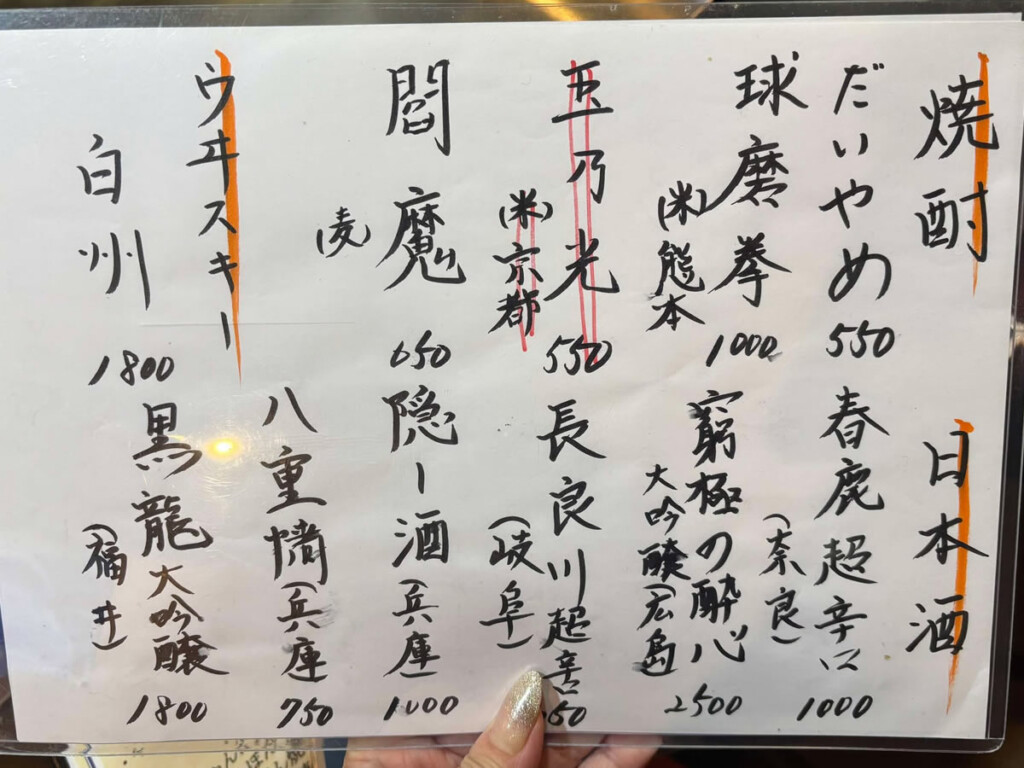 焼酎
だいやめ 550
球磨拳 1000
(米)熊本
玉乃光 550
(米)京都
閻魔 650
(麦)
ウヰスキー
白州 1800
日本酒
春鹿超辛口 1000
(奈良)
窮極の酔心 2500
大吟醸(広島
長良川超辛 50
(岐阜)
隠し酒(兵庫 1000
八重墻(兵庫 750
黒龍大吟醸 1800
(福井)